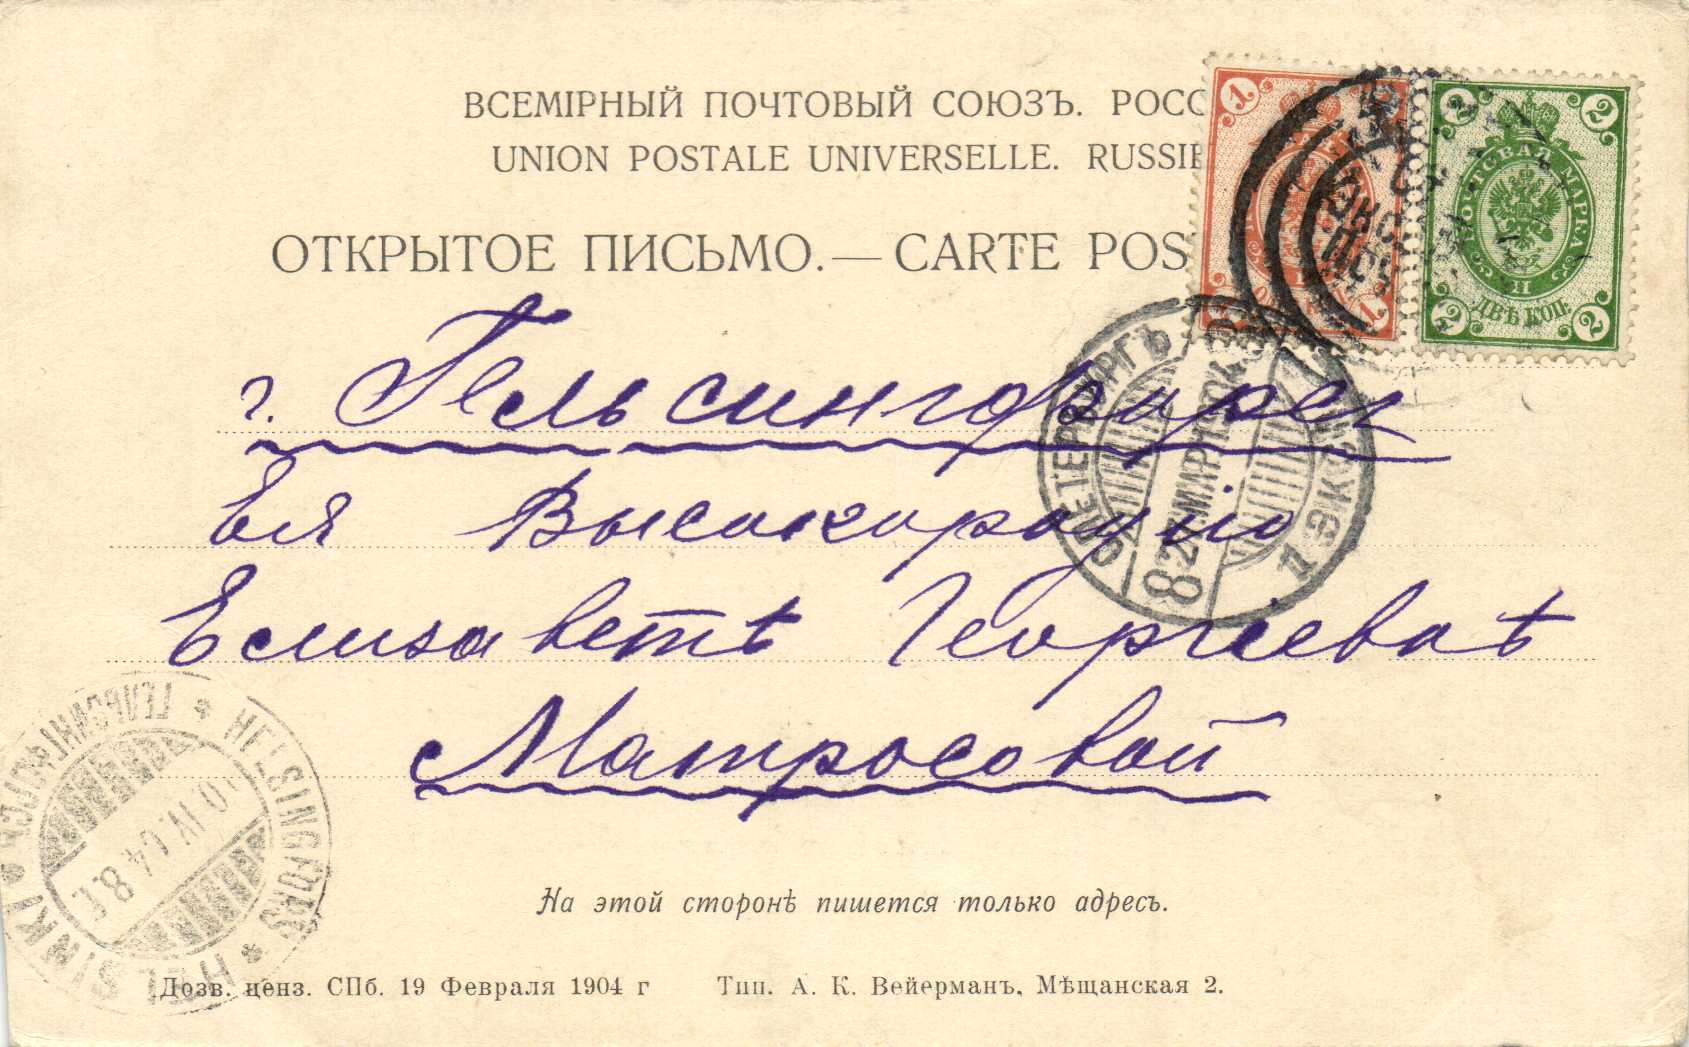 ВСЕМІРНЫЙ ПОЧТОВЫЙ СОЮЗЪ. РОСС
UNION POSTALE UNIVERSELLE. RUSSIE
ОТКРЫТОЕ ПИСЬМО. — CARTE POS
1
1
1
2
2
2
2
ПОЧТОВАЯ МАРКА
ДВѢ КОП.
С.ПЕТЕРБУРГЪ
8 27 МАР 1904
г. Гельсингфорсъ
Ея Высокородію
Елизаветѣ Георгіевнѣ
Матросовой
HELSINGFORS
HELSINKI
ГЕЛЬСИНГФОРСЪ
10.IV.04
На этой сторонѣ пишется только адресъ.
Дозв. ценз. СПб. 19 Февраля 1904 г Тип. А. К. Вейерманъ, Мѣщанская 2.